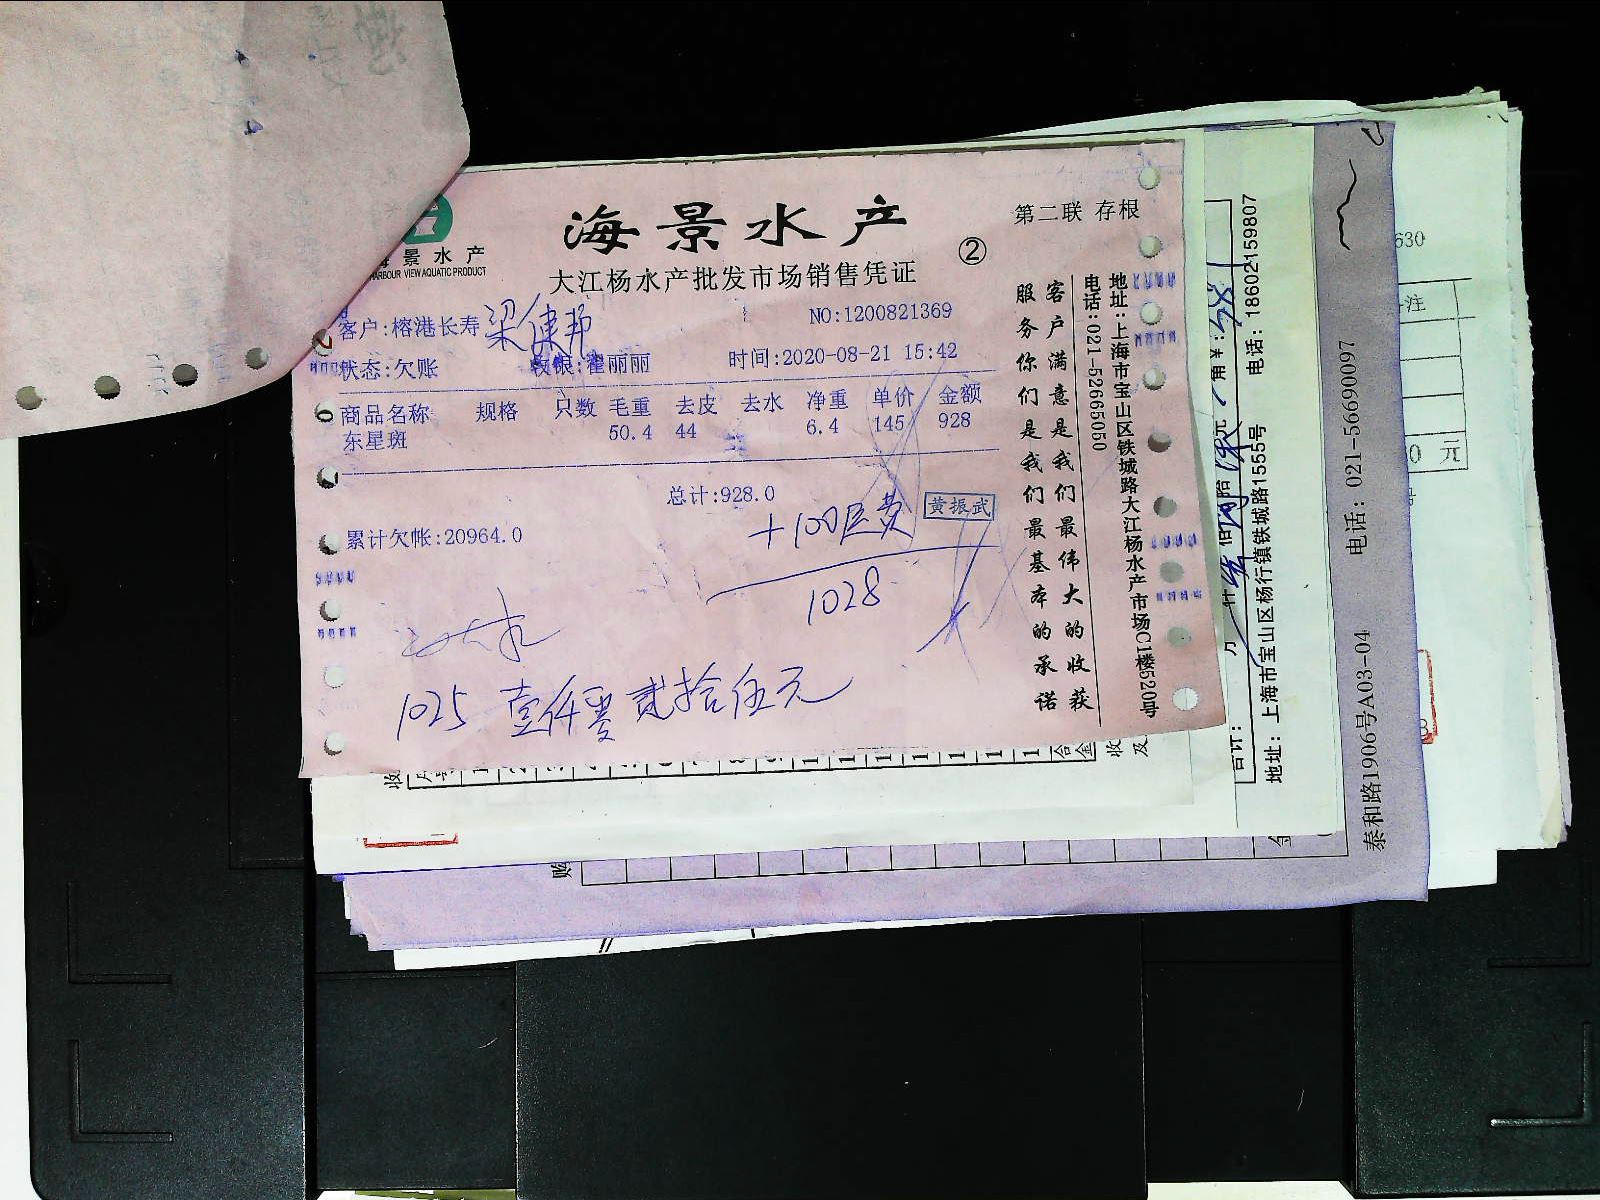 海景水产
第二联 存根
②
景水产
HARBOUR VIEW AQUATIC PRODUCT
大江杨水产批发市场销售凭证
客户:榕港长寿 梁健邦
NO:1200821369
状态:欠账 收银:翟丽丽 时间:2020-08-21 15:42
商品名称 规格 只数 毛重 去皮 去水 净重 单价 金额
东星斑 50.4 44 6.4 145 928
总计:928.0
黄振武
+100
累计欠帐:20964.0
1028
1025 壹仟零贰拾伍元
客户满意是我们最伟大的收获
服务你们是我们最基本的承诺
地址:上海市宝山区铁城路大江杨水产市场C1楼520号
电话:021-52665050
合计:
地址:上海市宝山区杨行镇铁城路1555号 电话:18602159807
泰和路1906号A03-04 电话:021-56690097
630
注
0 元